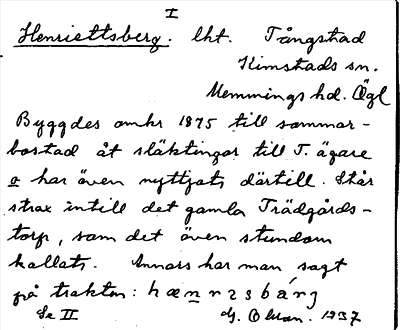 I
Henriettsberg. lht. Tångstad
Kimstads sn.
Memmings hd. Ögl
Byggdes omkr 1875 till sommar-
bostad åt släktingar till T. ägare
o har även nyttjats därtill. Står
strax intill det gamla Trädgårds-
torp, som det även stundom
kallats. Annars har man sagt
på trakten: hænrzsbárg
Se II 1937